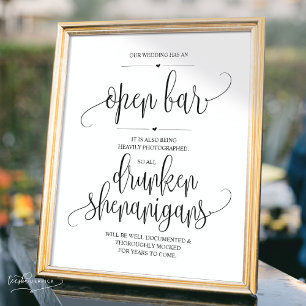 OUR WEDDING HAS AN
open bar
IT IS ALSO BEING
HEAVILY PHOTOGRAPHED,
SO ALL
drunken
shenanigans
WILL BE WELL DOCUMENTED &
THOROUGHLY MOCKED
FOR YEARS TO COME.